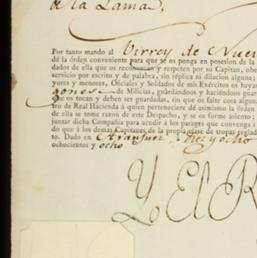 de la Lama,
Por tanto mando al Virrey de Nuev
dé la órden conveniente para que se os ponga en posesion de la
dados de ella que os reconozcan y respeten por su Capitan, obe
servicio por escrito y de palabra, sin réplica ni dilacion alguna;
yores y menores, Oficiales y Soldados de mis Exércitos os hayan
gones de Milicias, guardándoos y haciéndoos guar
que os tocan y deben ser guardadas, sin que os falte cosa alguna
tro de Real Hacienda á quien perteneciere dé asimismo la órden
de ella se tome razon de este Despacho, y se os forme asiento;
juntar dicha Compañía para acudir á los parages que convenga á
do que á los demas Capitanes de la propia clase de tropas reglad
to. Dado en Aranjuez diez y ocho
ochocientos y ocho
Yo El R